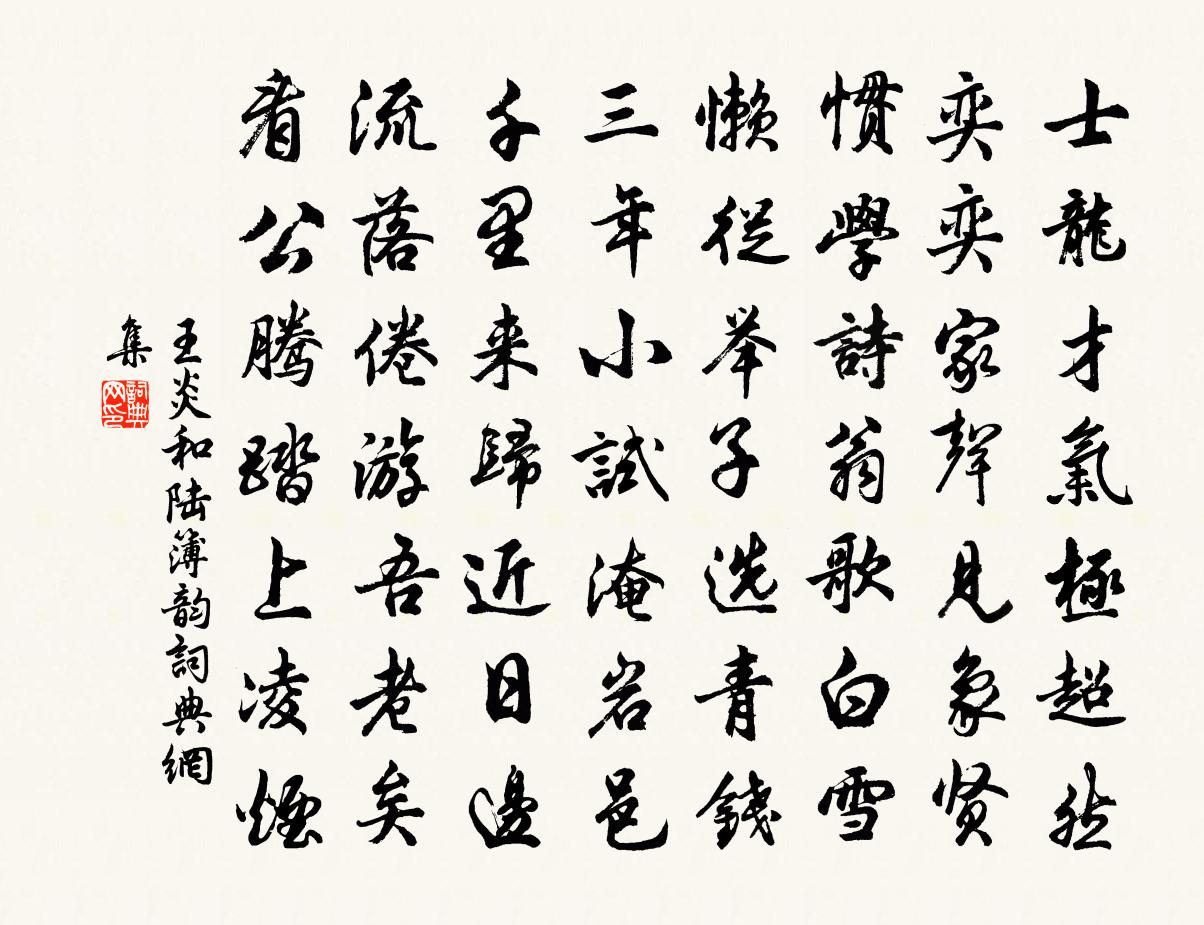 士龍才氣極超然
奕奕家聲見象贤
慣學詩翁歌白雪
懒從举子选青錢
三年小試淹岩邑
千里来歸近日邊
流落倦游吾老矣
看公腾踏上凌煙
王炎和陆簿韵詞典網
集
詞典网印